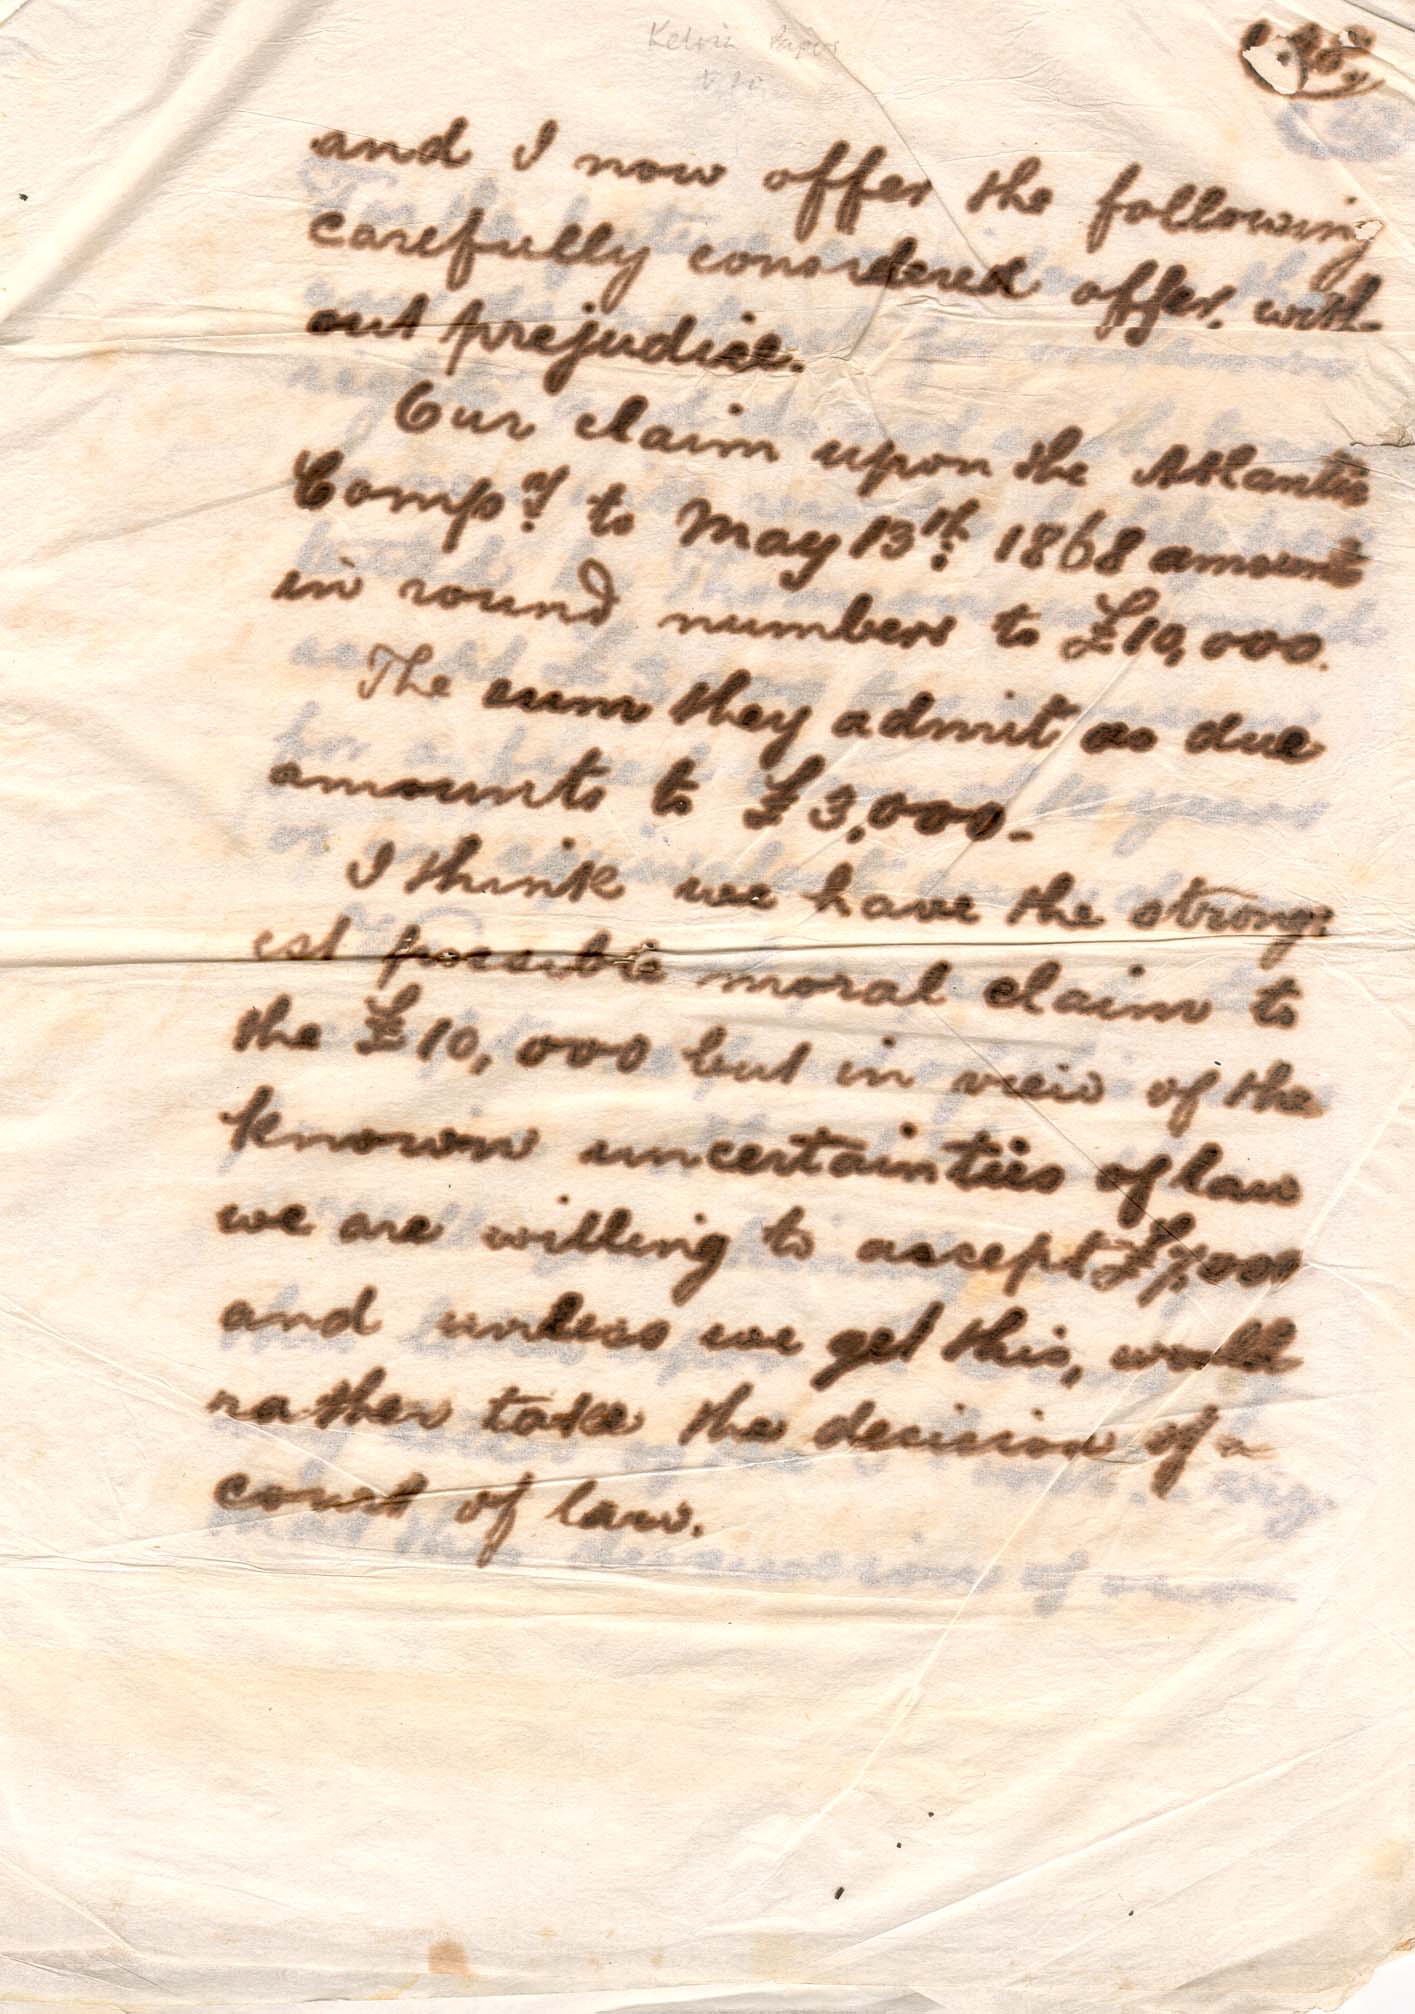 Kelvin Papers
and I now offer the following
carefully considered offer, with-
out prejudice.
Our claim upon the Atlantic
Compy. to May 13th. 1868 amounts
in round numbers to £10,000.
The sum they admit as due
amounts to £3,000-
I think we have the strong-
est possible moral claim to
the £10,000 but in view of the
known uncertainties of law
we are willing to accept £7,000
and unless we get this, would
rather take the decision of a
court of law.